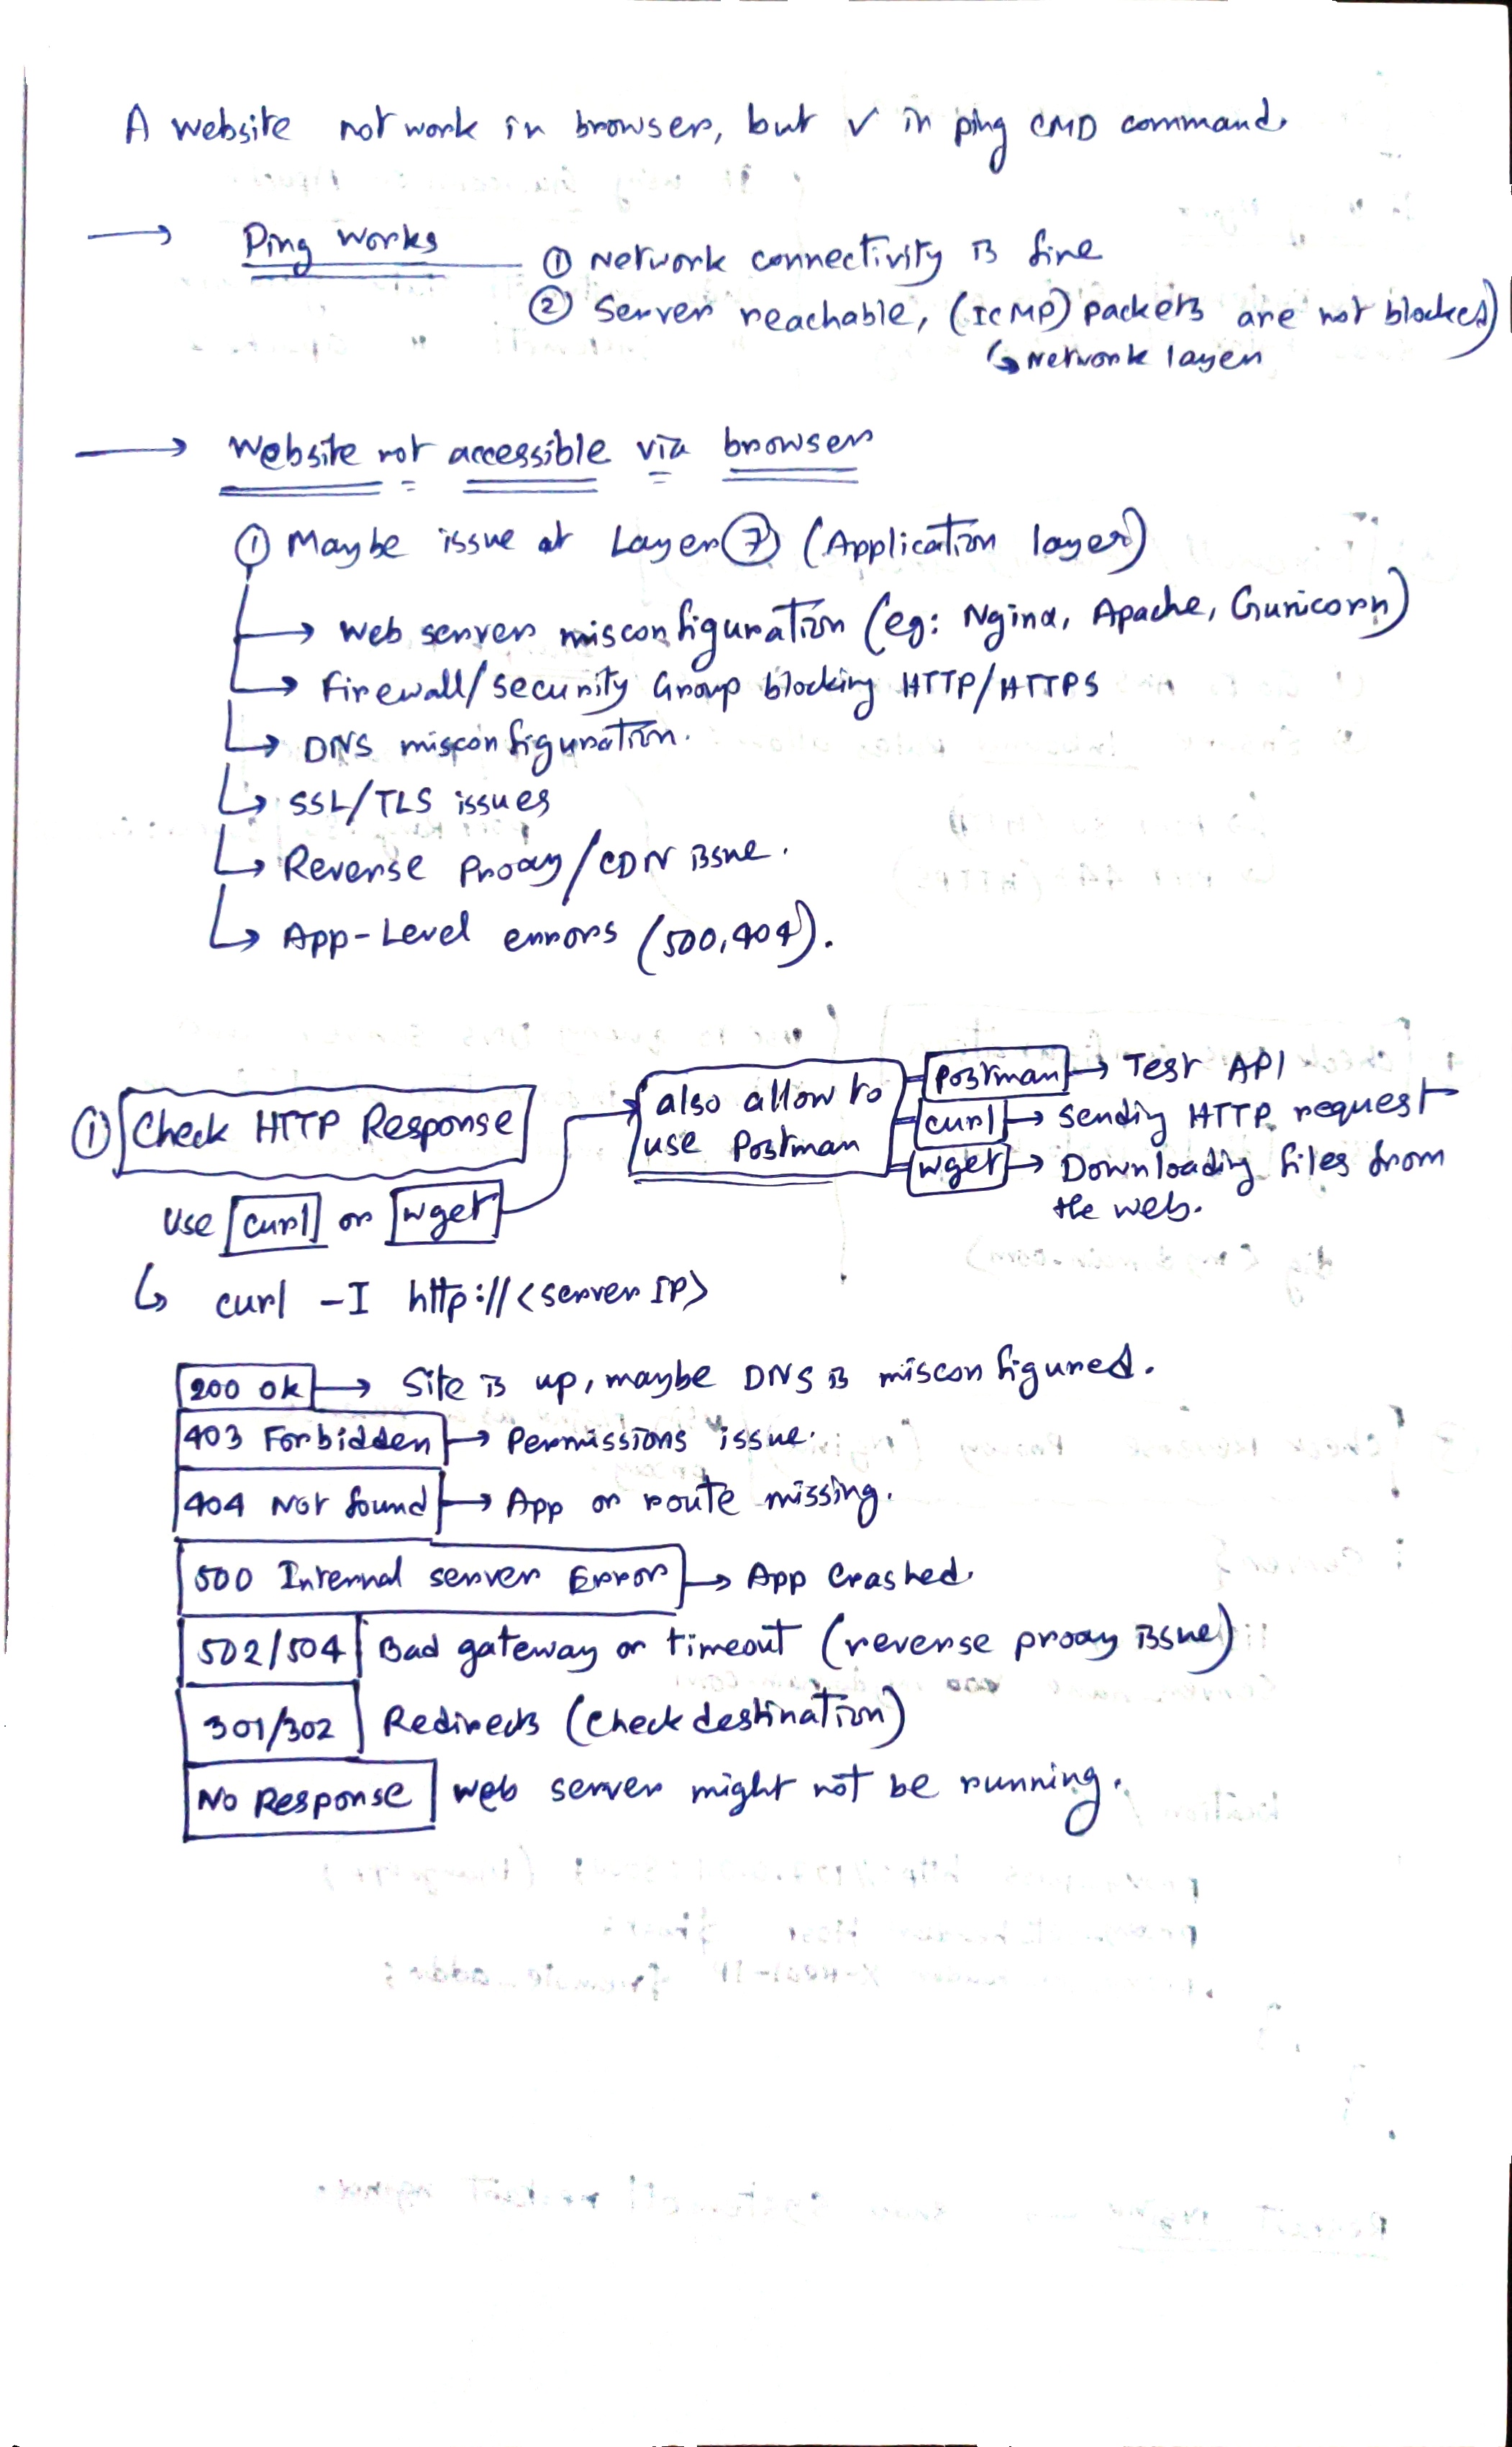 A website not work in browser, but ✓ in ping CMD command.
→ Ping works
① Network connectivity is fine
② Server reachable, (ICMP) packets are not blocked)
↳ Network layer
→ Website not accessible via browser
① Maybe issue at Layer ⑦ (Application layer)
→ Web server misconfiguration (eg: Nginx, Apache, Gunicorn)
→ Firewall/security Group blocking HTTP/HTTPS
↳ DNS misconfiguration.
↳ SSL/TLS issues
↳ Reverse Proxy/CDN issue.
↳ App-Level errors (500,404).
① Check HTTP Response
use curl or wget
also allow to
use Postman
Postman → Test API
curl → sending HTTP request
wget → Downloading files from
the web.
↳ curl -I http://<server IP>
200 ok → Site is up, maybe DNS is misconfigured.
403 Forbidden → Permissions issue.
404 Not found → App or route missing.
500 Internal server Error → App Crashed.
502/504 Bad gateway or timeout (reverse proxy issue)
301/302 Redirects (check destination)
No Response web server might not be running.